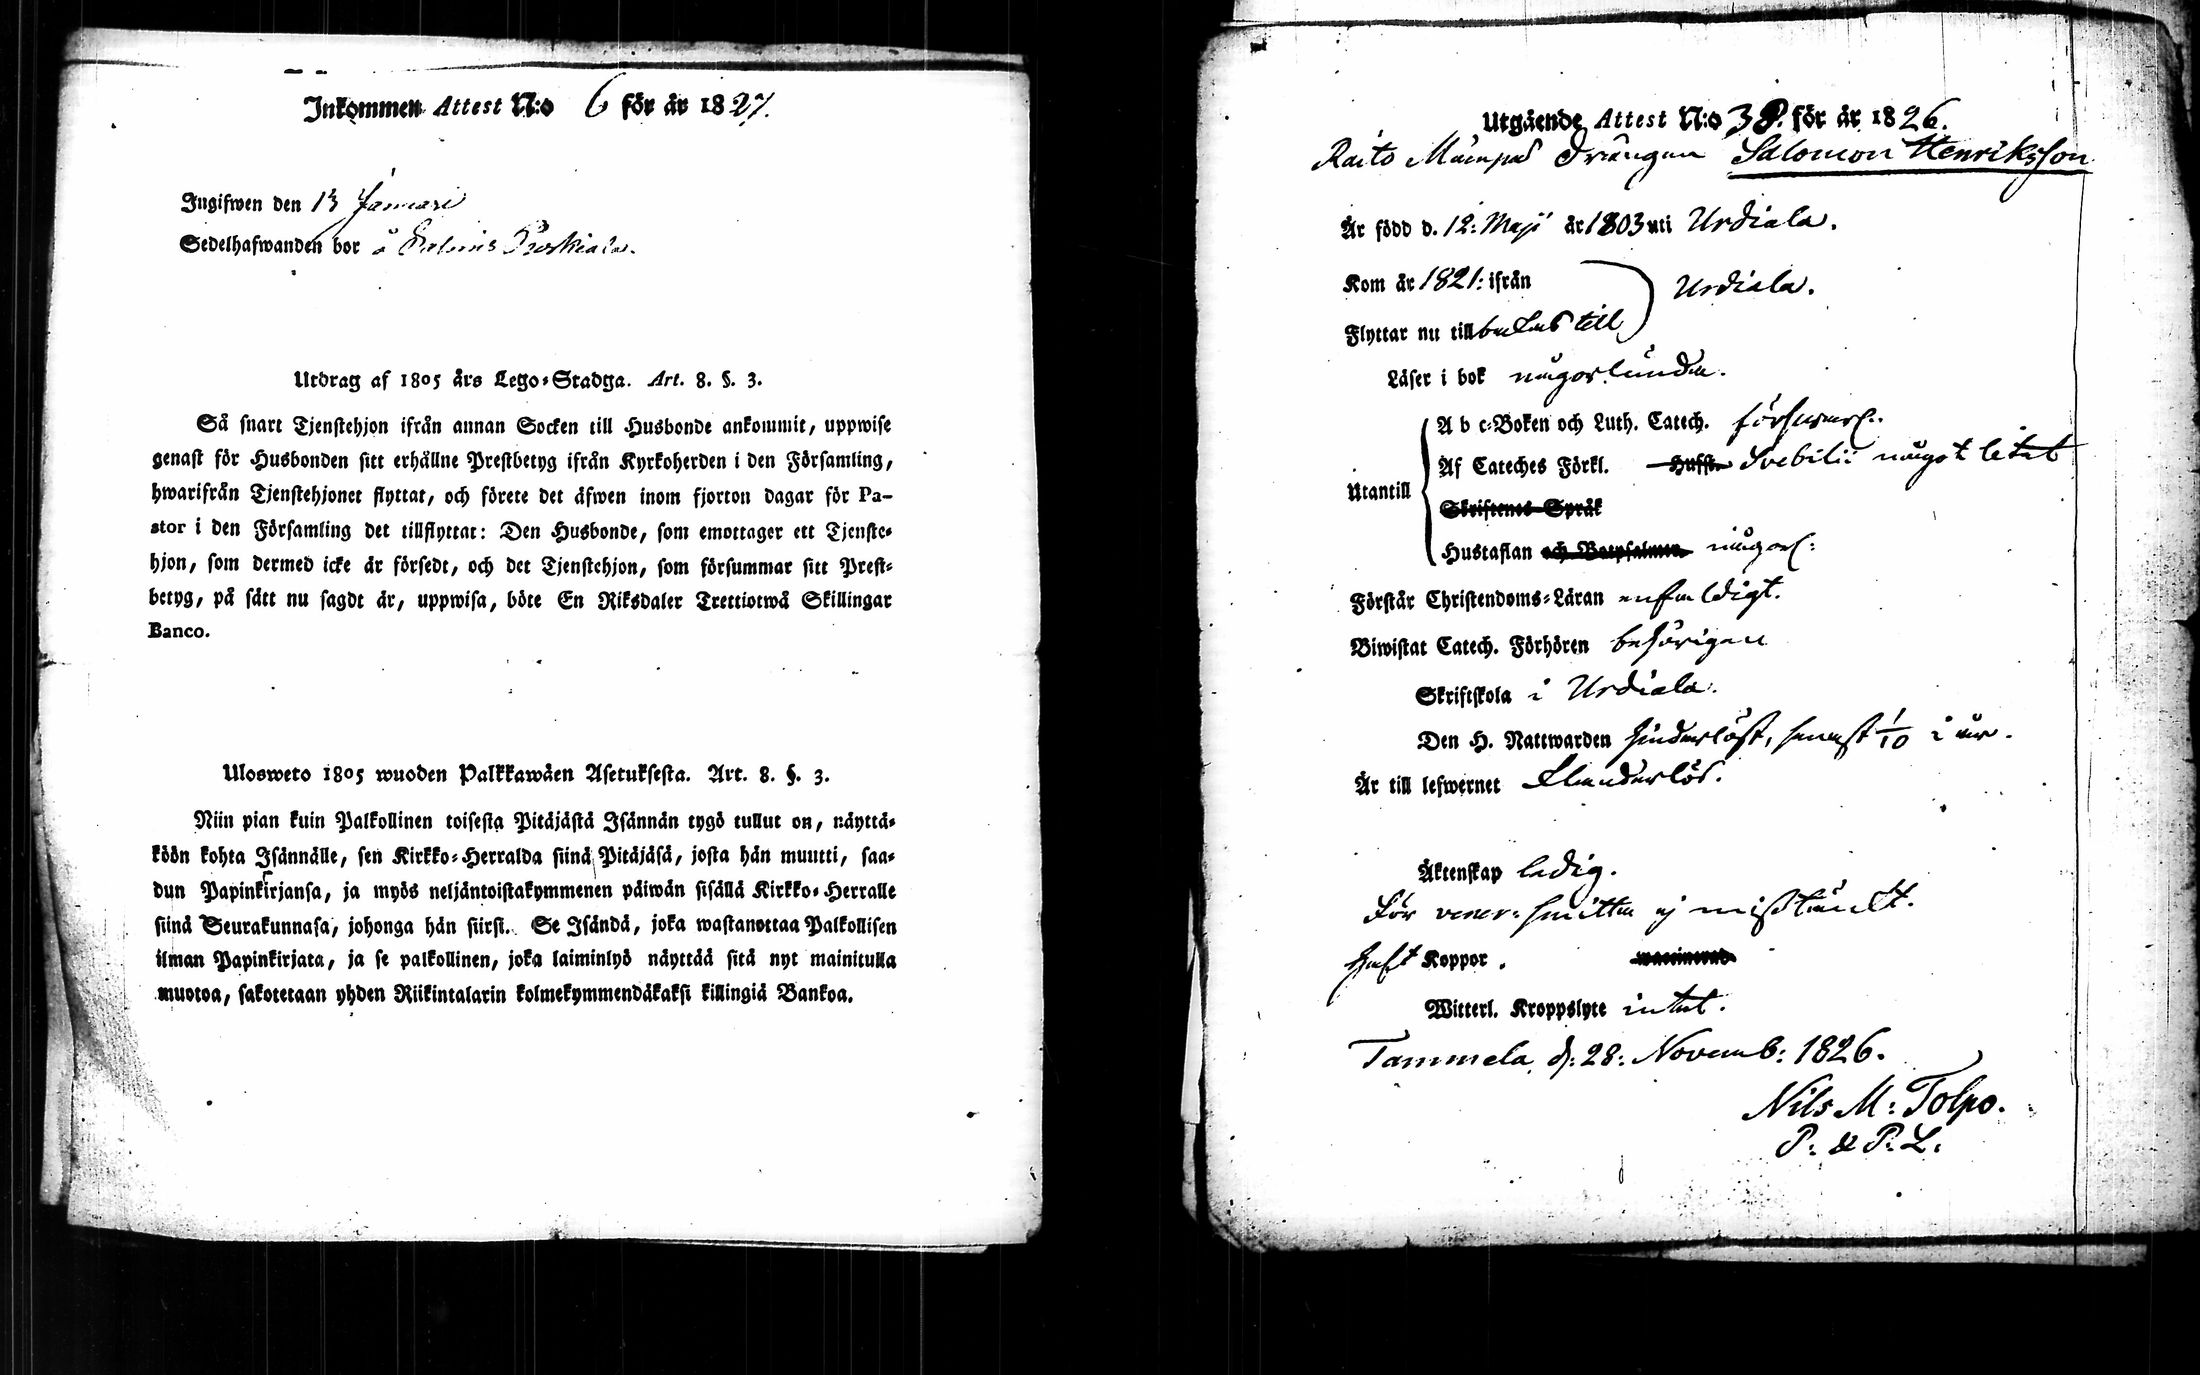 Inkommen Attest N:o 6 för år 1827.
Ingifwen den 13 Januari
Sedelhafwanden bor å
Utdrag af 1805 års Lego-Stadga. Art. 8. §. 3.
Så snart Tjenstehjon ifrån annan Socken till Husbonde ankommit, uppwise
genast för Husbonden sitt erhållne Prestbetyg ifrån Kyrkoherden i den Församling,
hwarifrån Tjenstehjonet flyttat, och förete det äfwen inom fjorton dagar för Pa-
stor i den Församling det tillflyttat: Den Husbonde, som emottager ett Tjenste-
hjon, som dermed icke är försedt, och det Tjenstehjon, som försummar sitt Prest-
betyg, på sätt nu sagdt är, uppwisa, böte En Riksdaler Trettiotwå Skillingar
Banco.
Ulosweto 1805 wuoden Palkkawäen Asetuksesta. Art. 8. §. 3.
Niin pian kuin Palkollinen toisesta Pitäjästä Isännän tygö tullut on, näyttä-
köön kohta Isännälle, sen Kirkko-Herralda siinä Pitäjäsä, josta hän muutti, saa-
dun Papinkirjansa, ja myös neljäntoistakymmenen päiwän sisällä Kirkko-Herralle
siinä Seurakunnasa, johonga hän siirsi. Se Isändä, joka wastanottaa Palkollisen
ilman Papinkirjata, ja se palkollinen, joka laiminlyö näyttää sitä nyt mainitulla
muotoa, sakotetaan yhden Riikintalarin kolmekymmendäkaksi killingiä Bankoa.
Utgående Attest N:o 38. för år 1826.
Raito Drängen Salomon Henriksson
Är född d. 12: Maji år 1803 uti Urdiala.
Kom år 1821: ifrån
Urdiala.
Flyttar nu tillbakas till
Läser i bok någorlunda.
A b c-Boken och Luth. Catech. försvarl:
Af Cateches Förkl. Hufft. Svebilii något litet
Utantill
Skriftenes Språk
Hustaflan och Botpsalmen någorl:
Förstår Christendoms-Läran enfaldigt.
Biwistat Catech. Förhören behörigen
Skriftskola i Urdiala.
Den H. Nattwarden hinderlöst, senast 1/10 i år.
Är till lefwernet klanderlös.
Äktenskap ledig.
För vener: smitta ej misstänkt.
Haft Koppor. waccinerad
Witterl. Kroppslyte intet.
Tammela, d: 28: Novemb: 1826.
Nils M: Tolpo.
P: & P: L: